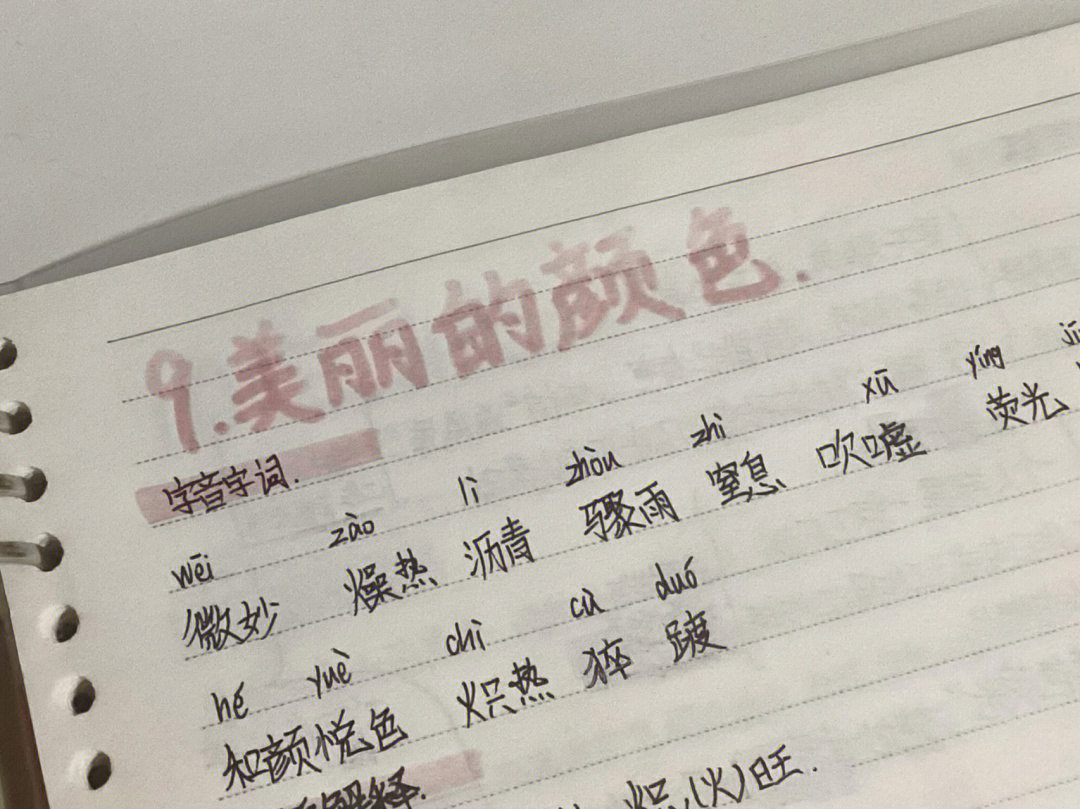 9.美丽的颜色.
字音字词.
wēi zào lì zhòu zhì xū yíng
微妙 燥热 沥青 骤雨 窒息 吹嘘 荧光
hé yuè chì cù duó
和颜悦色 炽热 猝 踱
解释.
(火)旺.